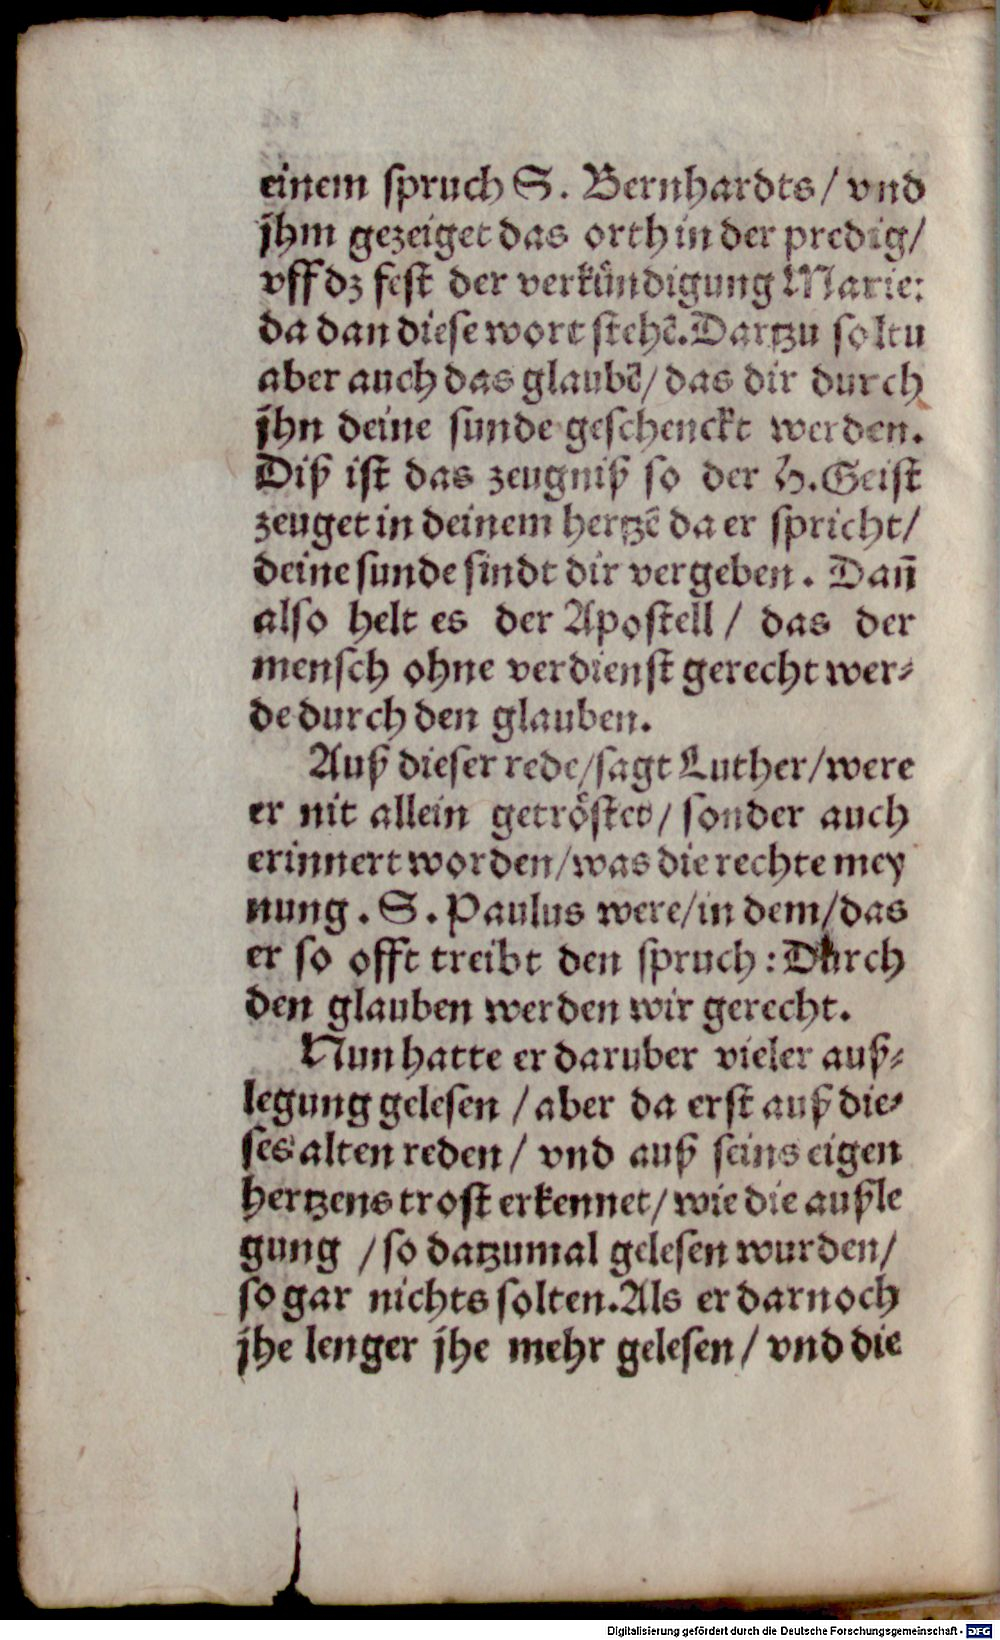 einem spruch S. Bernhardts/ vnd
jhm gezeiget das orth in der predig/
vff dz fest der verkündigung Marie:
da dan diese wort stehẽ. Dartzu soltu
aber auch das glaubẽ/ das dir durch
jhn deine sunde geschenckt werden.
Diß ist das zeugniß so der H. Geist
zeuget in deinem hertzẽ da er spricht/
deine sunde sindt dir vergeben. Dañ
also helt es der Apostell/ das der
mensch ohne verdienst gerecht wer-
de durch den glauben.
Auß dieser rede/ sagt Luther/ were
er nit allein getröstet/ sonder auch
erinnert worden/ was die rechte mey
nung. S. Paulus were/ in dem/ das
er so offt treibt den spruch: Durch
den glauben werden wir gerecht.
Nun hatte er daruber vieler auß-
legung gelesen/ aber da erst auß die-
ses alten reden/ vnd auß seins eigen
hertzens trost erkennet/ wie die außle
gung/ so datzumal gelesen wurden/
so gar nichts solten. Als er darnoch
jhe lenger jhe mehr gelesen/ vnd die
Digitalisierung gefördert durch die Deutsche Forschungsgemeinschaft - DFG